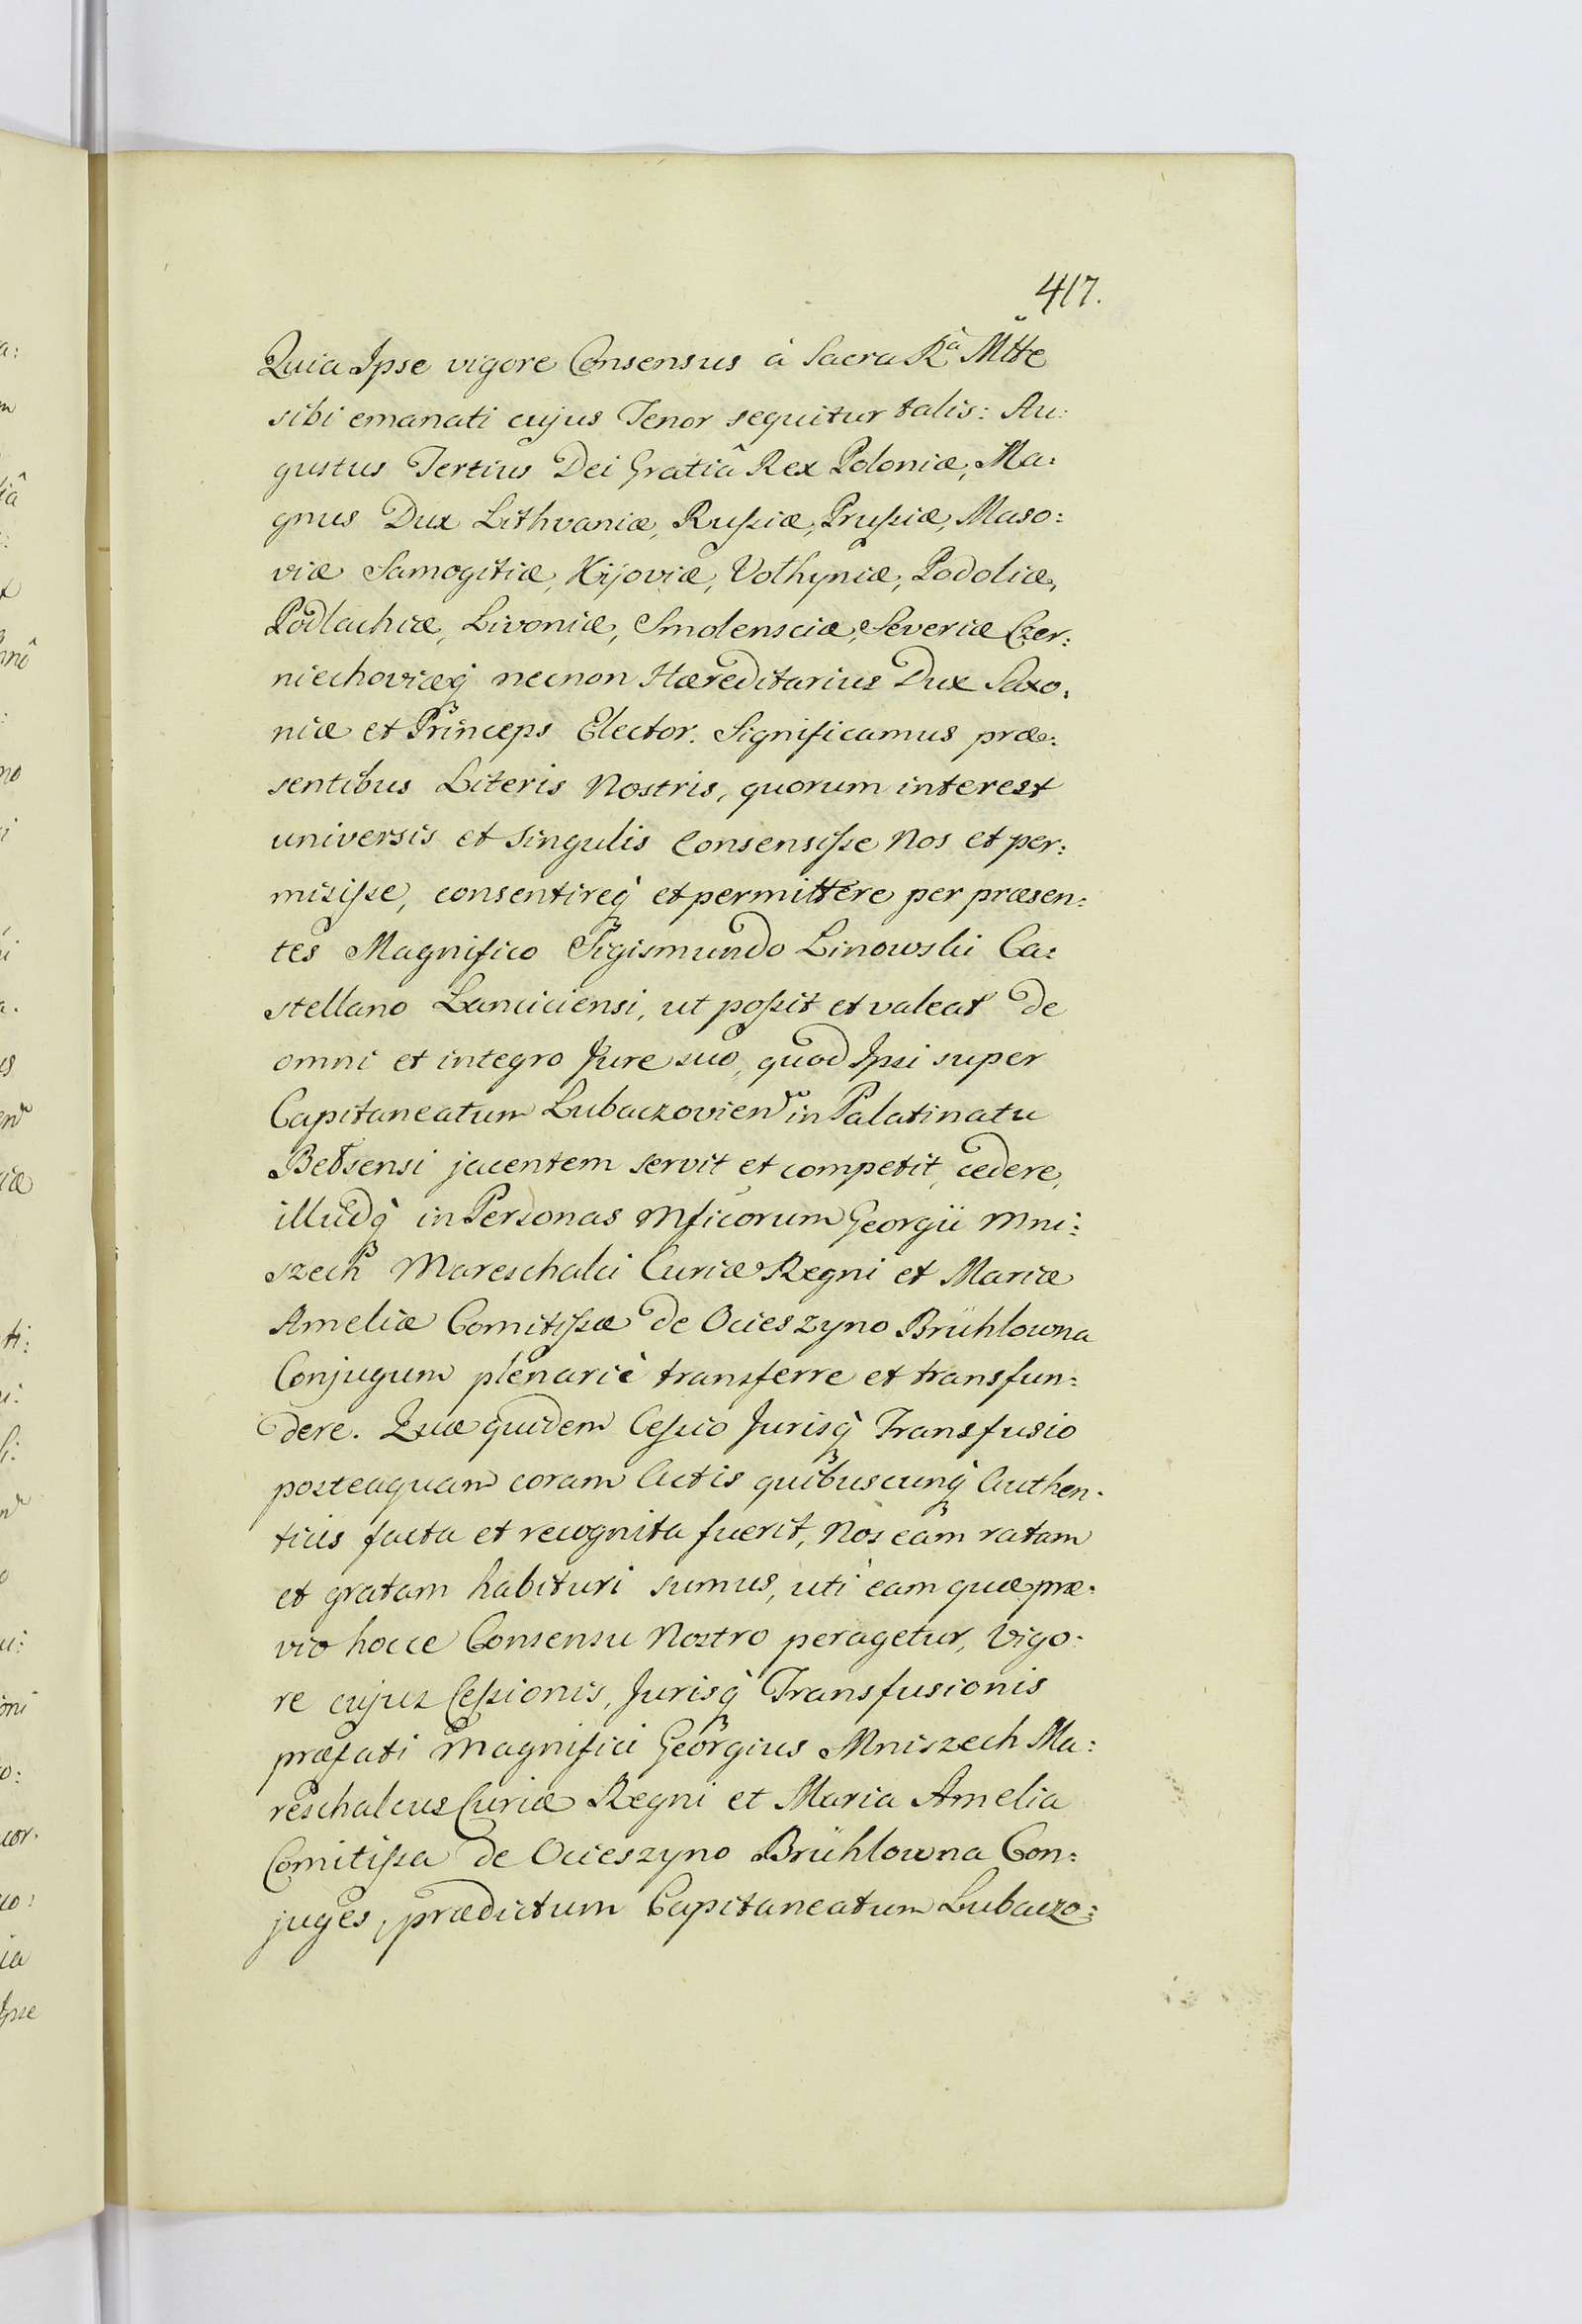 417.
Quia Ipse vigore Consensus à Sacra Rà Mtte
sibi emanati cujus Tenor sequitur talis: Au:
gustus Tertius Dei Gratiâ Rex Poloniæ, Ma:
gnus Dux Lithvaniæ, Rußiæ, Prußiæ, Maso:
viæ Samogitiæ, Kijoviæ, Volhyniæ, Podoliæ,
Podlachiæ, Livoniæ, Smolensciæ, Severiæ Czer:
niechoviæq̀ necnon Hæreditarius Dux Saxo:
niæ et Princeps Elector. Significamus præ:
sentibus Literis Nostris, quorum interest
universis et singulis Consensiße Nos et per:
misiße, consentireq̀ et permittere per præsen:
tes Magnifico Sigismundo Linowski Ca:
stellano Lanciciensi, ut poßit et valeat de
omni et integro Jure suo, quod Ipsi super
Capitaneatum Lubaczovien in Palatinatu
Belsensi jacentem servit et competit, cedere,
illudq̀ in Personas Mficorum Georgii Mni:
szech Mareschalci Curiæ Regni et Mariæ
Ameliæ Comitißæ de Ocieszyno Brühlowna
Conjugum plenariè transferre et transfun:
dere. Quæ quidem Ceßio Jurisq̀ Transfusio
posteaquam coram Actis quibuscunq̀ Authen:
ticis facta et recognita fuerit, Nos eam ratam
et gratam habituri sumus, uti eam quæ præ:
vio hocce Consensu Nostro peragetur, Vigo:
re cujus Ceßionis, Jurisq̀ Transfusionis
præfati Magnifici Georgius Mniszech Ma:
reschalcus Curiæ Regni et Maria Amelia
Comitißa de Ocieszyno Brühlowna Con:
juges, prædictum Capitaneatum Lubaczo: